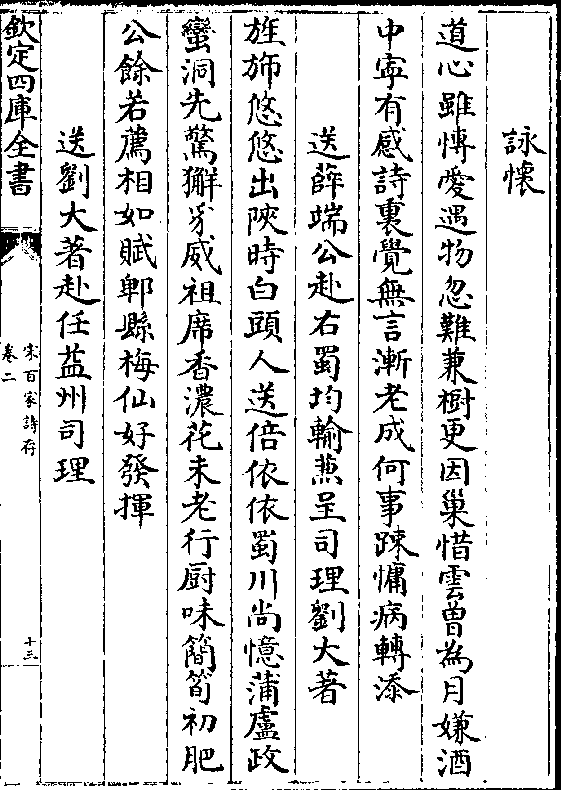 詠懷
道心雖慱愛遇物忽難兼樹更因巢惜雲曾為月嫌酒
中寜有感詩裏覺無言漸老成何事踈慵病轉添
送薛端公赴右蜀均輸兼呈司理劉大著
旌斾悠悠出陜時白頭人送倍依依蜀川尚憶蒲盧政
蠻洞先驚獬豸威祖席香濃花未老行厨味簡筍初肥
公餘若薦相如賦郫縣梅仙好發揮
送劉大著赴任益州司理
欽定四庫全書
宋百家詩存
卷二
十三